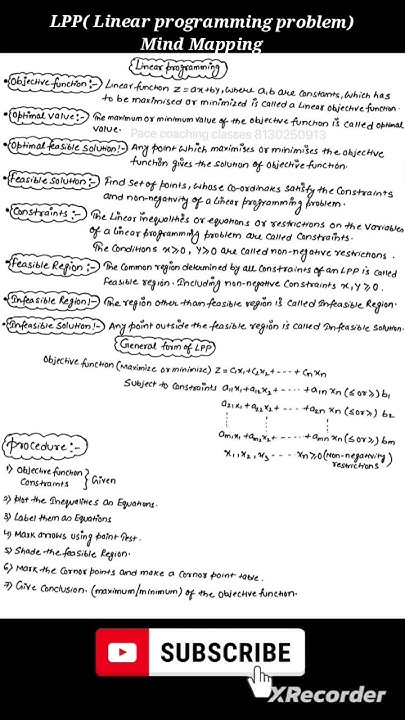 LPP( Linear programming problem)
Mind Mapping
Linear programming
• Objective function:- Linear function Z = ax+by, where a,b are constants, which has
to be maximised or minimized is called a linear objective function.
• Optimal value:- The maximum or minimum value of the objective function is called optimal
value.
Pace coaching classes 8130250913
• Optimal feasible solution!- Any point which maximises or minimises the objective
function gives the solution of objective function.
• Feasible solution:- Find set of points, whose co-ordinates satisfy the constraints
and non-negativity of a linear programming problem.
• Constraints:- The linear inequalities or equations or restrictions on the variables
of a linear programming problem are called constraints.
The conditions x≥0, y≥0 are called non-negative restrictions.
• Feasible Region:- The common region determined by all constraints of an LPP is called
feasible region. Including non-negative constraints x, y ≥ 0.
• Infeasible Region!- The region other than feasible region is called Infeasible Region.
• Infeasible Solution!- Any point outside the feasible region is called Infeasible solution.
General form of LPP
Objective function (Maximize or minimize) Z = C₁x₁ + C₂x₂ + ---- + Cn xn
Subject to constraints a₁₁x₁ + a₁₂x₂ + ---- + a₁n xn (≤ or ≥) b₁
a₂₁x₁ + a₂₂x₂ + ---- + a₂n xn (≤ or ≥) b₂
am₁x₁ + am₂x₂ + ---- + amn xn (≤ or ≥) bm
x₁, x₂, x₃ ---- xn ≥ 0 (Non-negativity
restrictions)
Procedure:-
1) Objective function
Constraints } Given
2) Plot the Inequalities an Equations.
3) Label them as Equations
4) Mark arrows using point Test.
5) Shade the feasible Region.
6) Mark the Cornor points and make a Cornor point table.
7) Give Conclusion. (maximum/minimum) of the objective function.
SUBSCRIBE
XRecorder